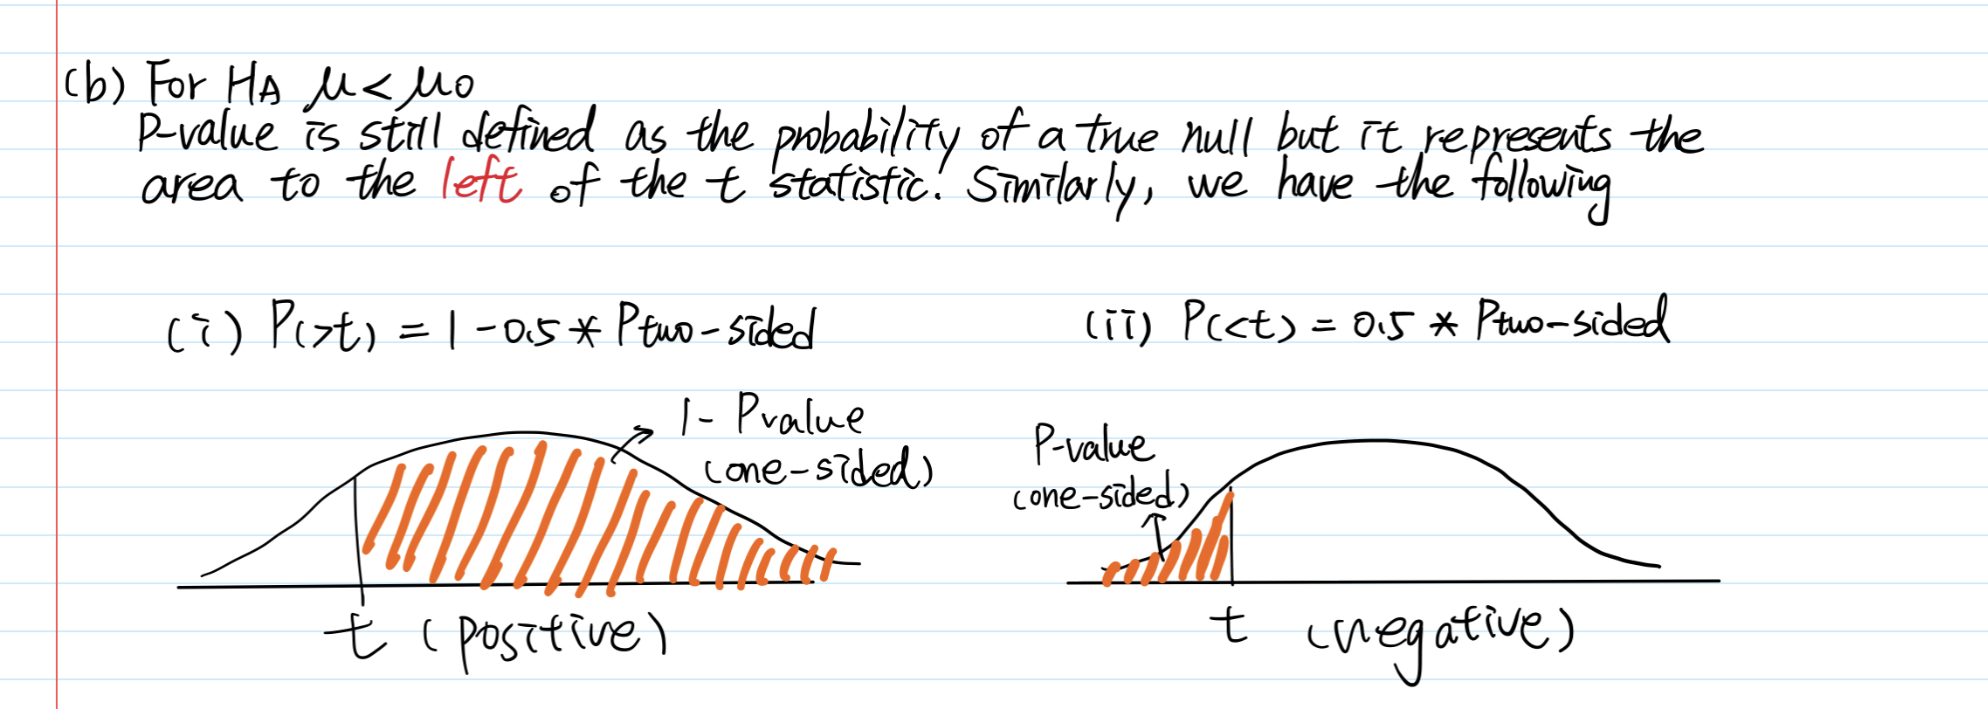 (b) For HA μ < μ0
P-value is still defined as the probability of a true null but it represents the
area to the left of the t statistic. Similarly, we have the following
(i) P(>t) = 1 - 0.5 * Ptwo-sided
(ii) P(<t) = 0.5 * Ptwo-sided
1 - Pvalue
(one-sided)
P-value
(one-sided)
t (positive)
t (negative)